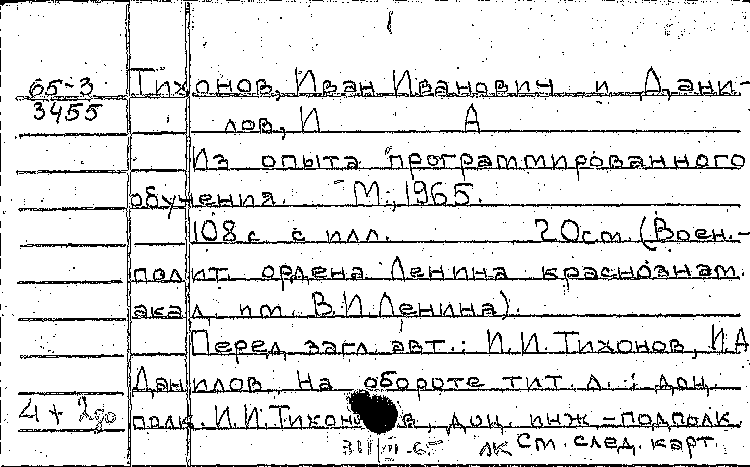 65-3
3455
Тихонов, Иван Иванович и Дани-
лов, И А
Из опыта программированного
обучения. М., 1965.
108 с с илл. 20 см. (Воен.-
полит. ордена Ленина краснознам.
акад. им. В.И.Ленина).
Перед загл. авт.: И.И.Тихонов, И.А
Данилов. На обороте тит. л.: доц.
полк. И.И.Тихонов, доц. инж-подполк.
4 +
см. след. карт.